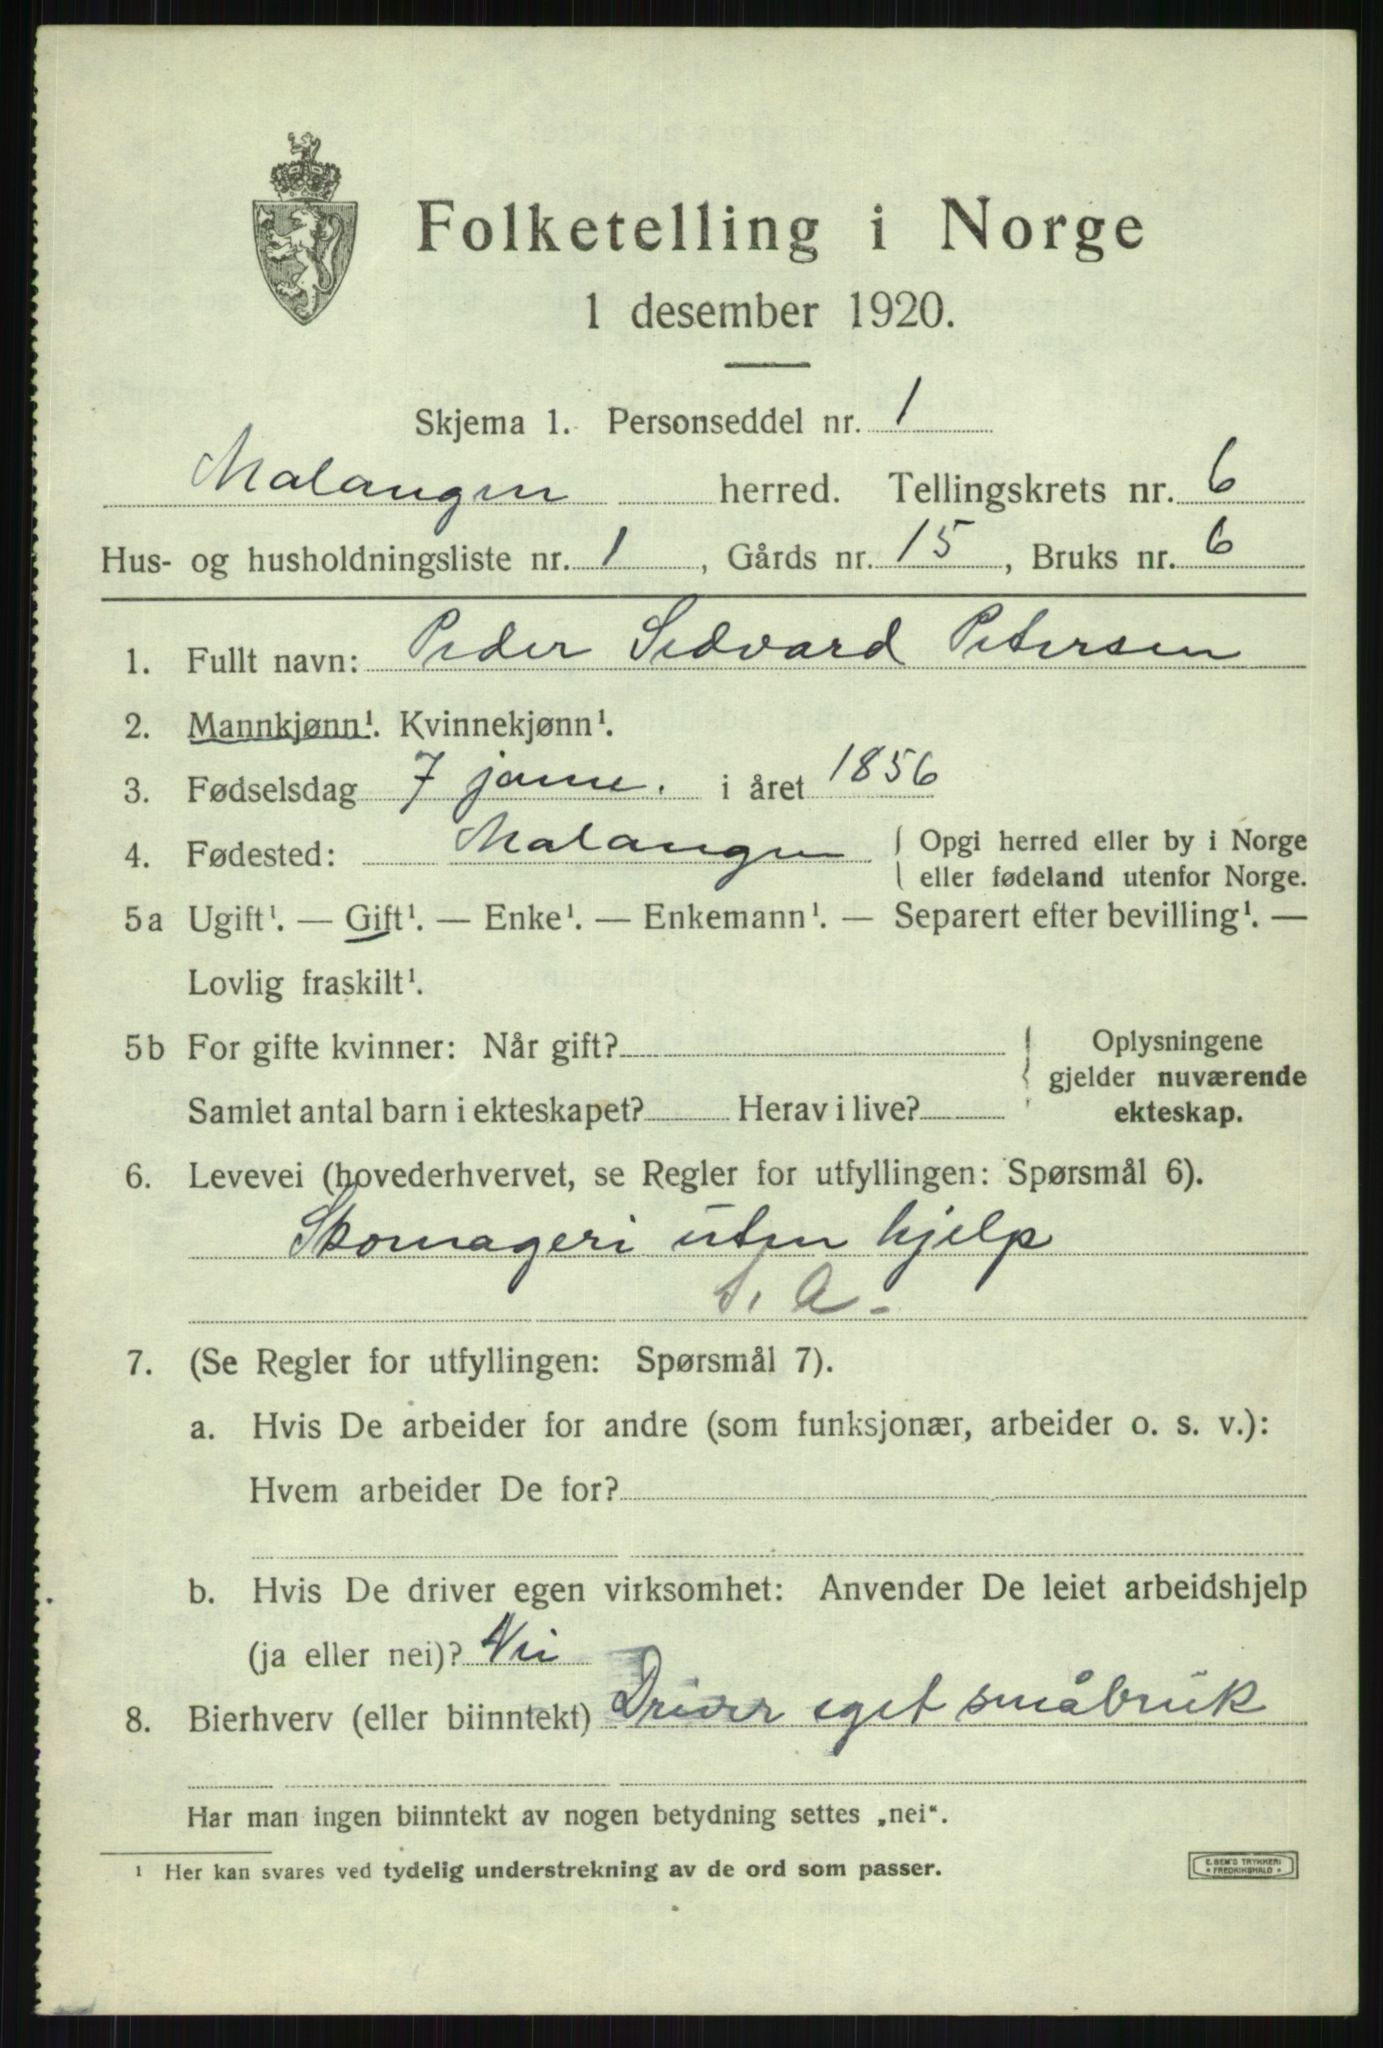 Folketelling i Norge
1 desember 1920.
Skjema 1. Personseddel nr. 1
Malangen herred. Tellingskrets nr. 6
Hus- og husholdningsliste nr. 1, Gårds nr. 15, Bruks nr. 6
1. Fullt navn: Peder Sedvard Petersen
2. Mannkjønn¹. Kvinnekjønn¹.
3. Fødselsdag 7 janu. i året 1856
4. Fødested: Malangen { Opgi herred eller by i Norge
eller fødeland utenfor Norge.
5a Ugift¹. — Gift¹. — Enke¹. — Enkemann¹. — Separert efter bevilling¹. —
Lovlig fraskilt¹.
5b For gifte kvinner: Når gift? { Oplysningene
gjelder nuværende
Samlet antal barn i ekteskapet? Herav i live? ekteskap.
6. Levevei (hovederhvervet, se Regler for utfyllingen: Spørsmål 6).
Skomageri uten hjelp
S. A-
7. (Se Regler for utfyllingen: Spørsmål 7).
a. Hvis De arbeider for andre (som funksjonær, arbeider o. s. v.):
Hvem arbeider De for?
b. Hvis De driver egen virksomhet: Anvender De leiet arbeidshjelp
(ja eller nei)? Nei
8. Bierhverv (eller biinntekt) Driver eget småbruk
Har man ingen biinntekt av nogen betydning settes „nei“.
¹ Her kan svares ved tydelig understrekning av de ord som passer.
E. SEM'S TRYKKERI
* FREDRIKSHALD *